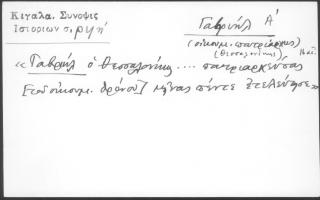 Κιγάλα. Σύνοψις
Ἱστοριῶν σ. ρμή
Γαβριήλ Α΄
(οἰκουμ. πατριάρχης)
(Θεσσαλονίκης)
« Γαβριήλ ὁ Θεσσαλονίκης .... πατριαρχεύσας
[τοῦ οἰκουμ. θρόνου] μῆνας πέντε ἐτελεύτησε»